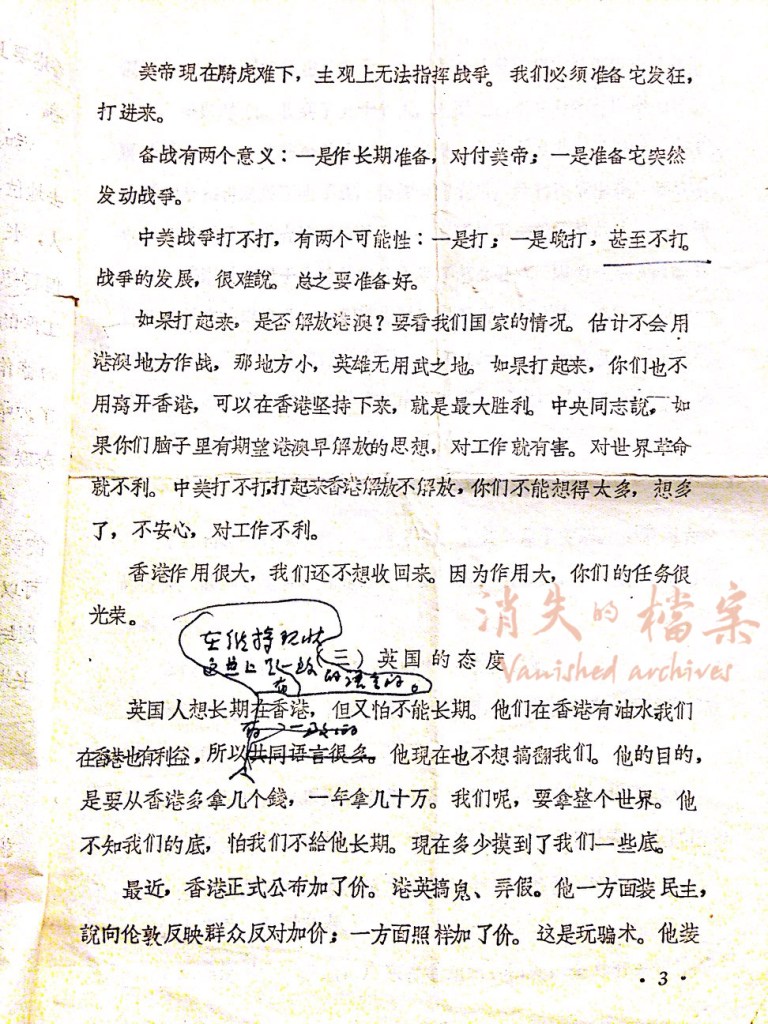 美帝現在騎虎难下，主观上无法指挥战爭。我们必须准备它发狂，
打进来。
备战有两个意义：一是作长期准备，对付美帝；一是准备它突然
发动战爭。
中美战爭打不打，有两个可能性：一是打；一是晚打，甚至不打。
战爭的发展，很难說。总之要准备好。
如果打起来，是否解放港澳？要看我们国家的情况。估计不会用
港澳地方作战，那地方小，英雄无用武之地。如果打起来，你们也不
用离开香港，可以在香港坚持下来，就是最大胜利。中央同志說，如
果你们脑子里有期望港澳早解放的思想，对工作就有害。对世界革命
就不利。中美打不打，打起来香港解放不解放，你们不能想得太多，想多
了，不安心，对工作不利。
香港作用很大，我们还不想收回来。因为作用大，你们的任务很
光荣。
在维持现状
这点上
（三）英国的态度
的语言的。
英国人想长期在香港，但又怕不能长期。他们在香港有油水，我们
在香港也有利益，所以共同语言很多。他现在也不想搞翻我们。他的目的，
是要从香港多拿几个錢，一年拿几十万。我们呢，要拿整个世界。他
不知我们的底，怕我们不給他长期。现在多少摸到了我们一些底。
最近，香港正式公布加了价。港英搞鬼、弄假。他一方面装民主，
說向伦敦反映群众反对加价；一方面照样加了价。这是玩骗术。他装
·3·
消失的檔案
Vanished archives